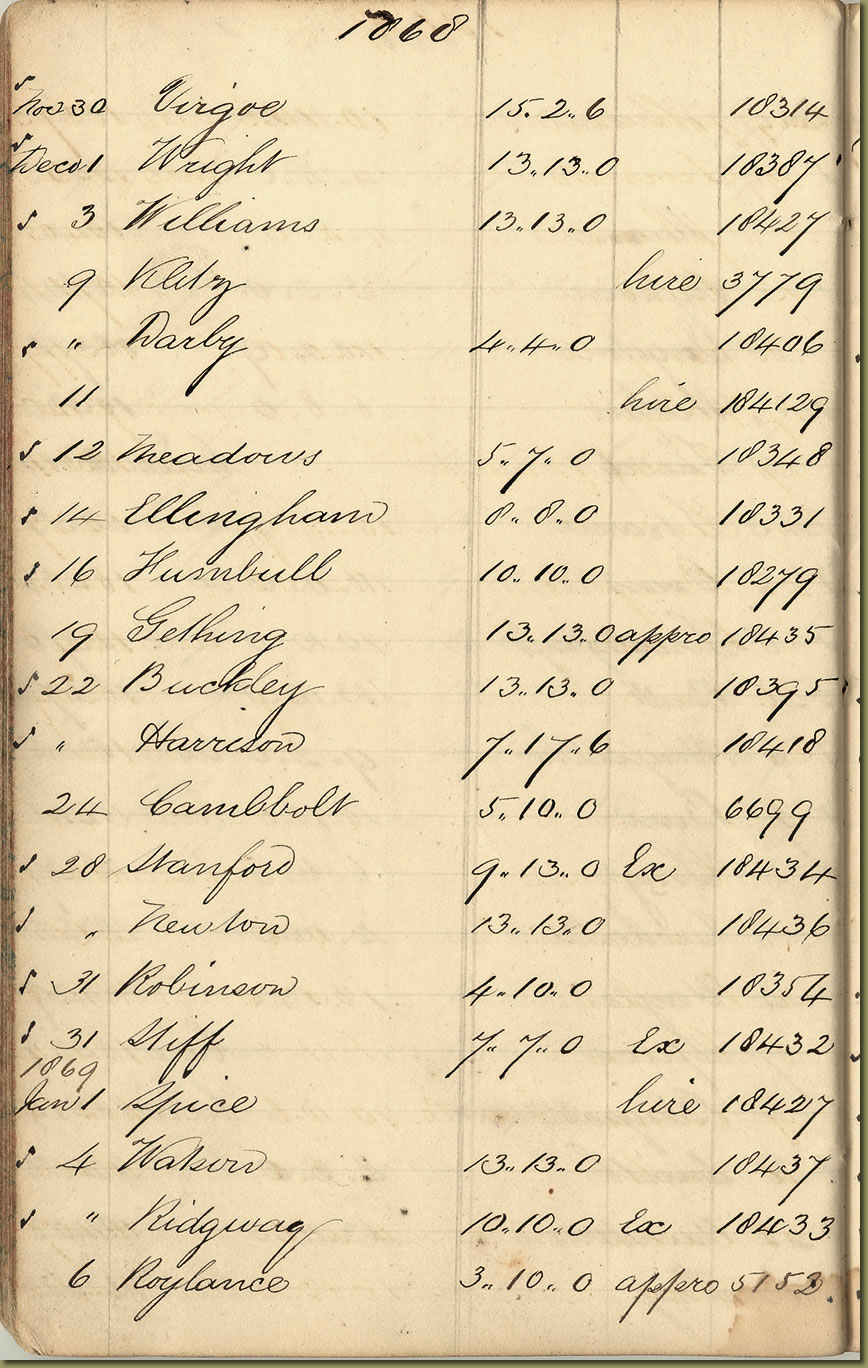 1868
s Nov 30 Virgoe 15.2..6 18314
s Dec 1 Wright 13..13..0 18387
s 3 Williams 13..13..0 18427
9 hire 3779
s " Darby 4..4..0 18406
11 hire 184129
s 12 Meadows 5..7..0 18348
s 14 Ellingham 8..8..0 18331
s 16 10..10..0 18279
19 Gething 13..13..0 appro 18435
s 22 Buckley 13..13..0 18395
s " Harrison 7..17..6 18418
24 5..10..0 6699
s 28 Stanford 9..13..0 Ex 18434
s " Newton 13..13..0 18436
s 31 Robinson 4..10..0 18354
s 31 Stiff 7..7..0 Ex 18432
1869
Jan 1 Spice hire 18427
s 4 Watson 13..13..0 18437
s " Ridgway 10..10..0 Ex 18433
6 Roylance 3..10..0 appro 5152